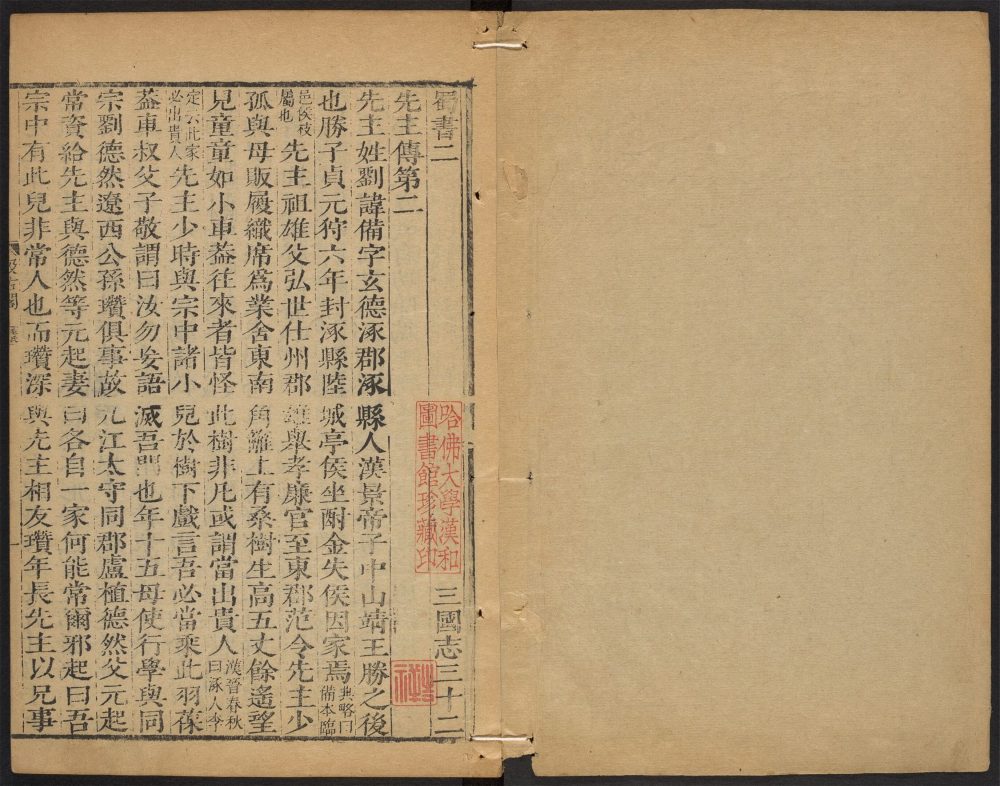 蜀書二　三國志三十二
哈佛大學漢和
圖書館珍藏印
先主傳第二
先主姓劉諱備字玄德涿郡涿縣人漢景帝子中山靖王勝之後
也勝子貞元狩六年封涿縣陸城亭侯坐酎金失侯因家焉典略曰備本臨
邑侯枝屬也先主祖雄父弘世仕州郡雄舉孝廉官至東郡范令先主少
孤與母販履織席爲業舍東南角籬上有桑樹生高五丈餘遙望
見童童如小車葢往來者皆怪此樹非凡或謂當出貴人漢晉春秋曰涿人李
定云此家必出貴人先主少時與宗中諸小兒於樹下戲言吾必當乘此羽葆
葢車叔父子敬謂曰汝勿妄語滅吾門也年十五母使行學與同
宗劉德然遼西公孫瓚俱事故九江太守同郡盧植德然父元起
常資給先主與德然等元起妻曰各自一家何能常爾邪起曰吾
宗中有此兒非常人也而瓚深與先主相友瓚年長先主以兄事